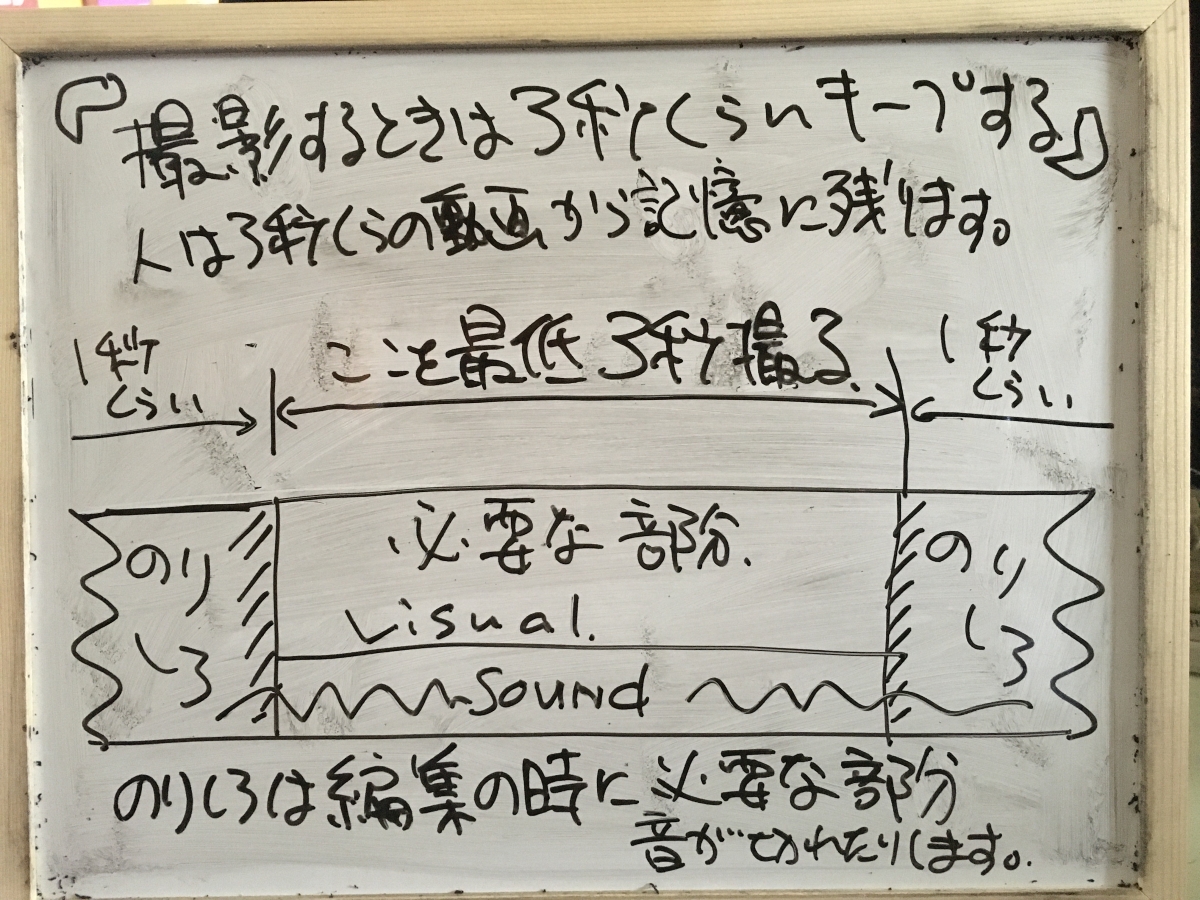 『撮影するときは3秒くらいキープする』
人は3秒くらの動画から記憶に残ります。
1秒くらい
ここを最低3秒撮る.
1秒くらい
のりしろ
必要な部分.
visual.
sound
のりしろ
のりしろは編集の時に必要な部分
音が切れたりします。